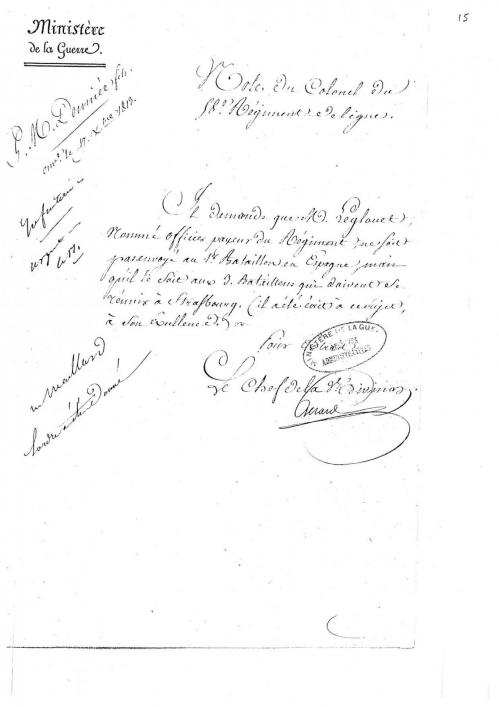 15
Ministère
de la Guerre.
Note du Colonel du
18e Régiment de ligne.
P. M. Denniée fils.
envoi le 17 Xbre 1813.
Infanterie
urgent
Il demande que M. Leglouet,
Nommé officier payeur du Régiment, ne soit
pas envoyé au 1er Bataillon en Espagne, mais
qu'il le soit aux 3 Bataillons qui doivent se
réunir à Strasbourg. (il a été écrit à ce sujet,
à Son Excellence.)
Pour
MINISTÈRE DE LA GUERRE
ARCHIVES ADMINISTRATIVES
Le Chef de la Division
Evrard
m Maillard
l'ordre a été donné